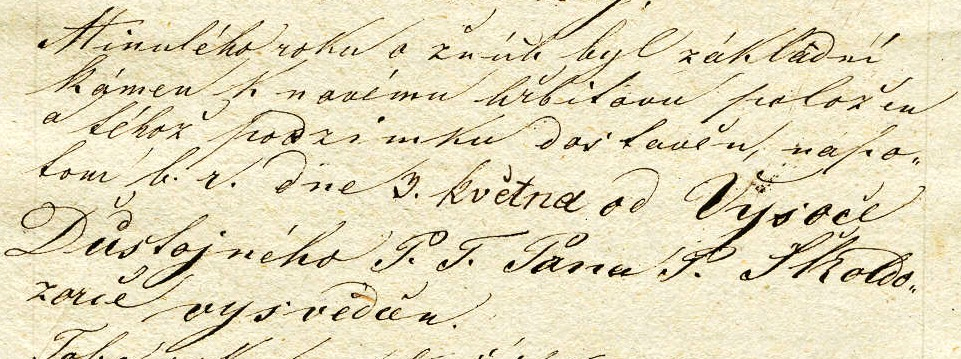 Minulého roku o žních byl základní
kámen k novému hřbitovu položen
a téhož podzimku dostavěn, napo-
tom b. r. dne 3. května od Vysoče
Důstojného P. T. Pana P. Školdo-
zorce vysvěcen.